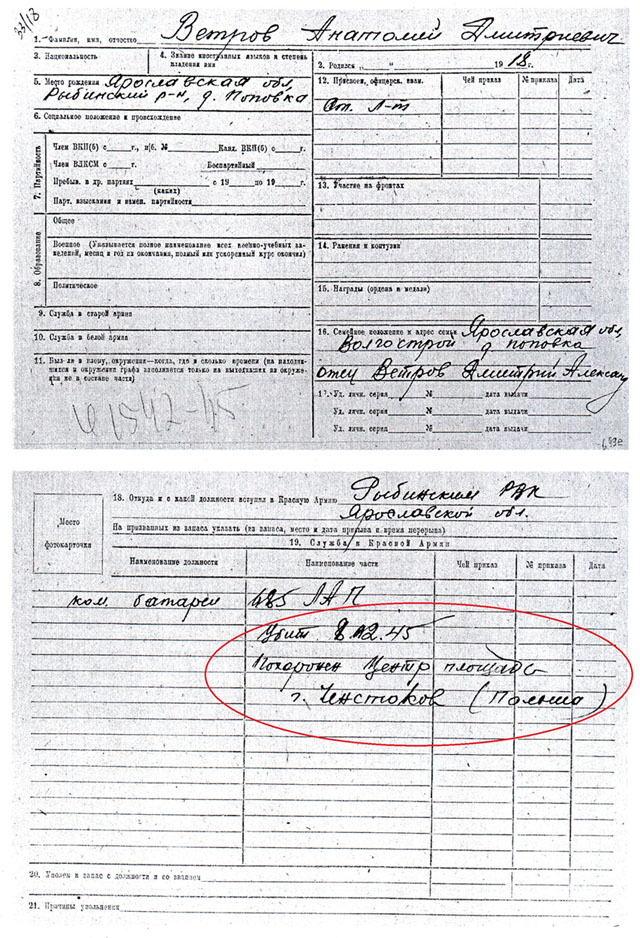 33/18
1. Фамилия, имя, отчество Ветров Анатолий Дмитриевич
3. Национальность
4. Знание иностранных языков и степень владения ими
2. Родился „ “ 1918 г.
5. Место рождения Ярославская обл,
Рыбинский р-н, д. Поповка
12. Присвоен. офицерск. зван. Чей приказ № приказа Дата
Ст. Л-т
6. Социальное положение и происхождение
7. Партийность
Член ВКП(б) с г., п/б. № Канд. ВКП(б) с г.
Член ВЛКСМ с г. Беспартийный
Пребыв. в др. партиях с 19 по 19 г.
(каких)
Парт. взыскания и измен. партийности
13. Участие на фронтах
8. Образование
Общее
Военное (Указывается полное наименование всех военно-учебных заведений, месяц и год их окончания, полный или ускоренный курс окончил)
Политическое
14. Ранения и контузии
15. Награды (ордена и медали)
9. Служба в старой армии
10. Служба в белой армии
11. Был ли в плену, окружении—когда, где и сколько времени (на находившихся в окружении графа заполняется только на вышедших из окружения не в составе части)
16. Семейное положение и адрес семьи Ярославская обл,
Волгострой д поповка
отец Ветров Дмитрий Александ
17. Уд. личн. серия № дата выдачи
Уд. личн. серия № дата выдачи
Уд. личн. серия № дата выдачи
И 1542-45
Место
фотокарточки
18. Откуда и с какой должности вступил в Красную Армию Рыбинским РВК
Ярославской обл.
На призванных из запаса указать (из запаса, место и дата призыва и время перерыва)
19. Служба в Красной Армии
Наименование должности Наименование части Чей приказ № приказа Дата
ком. батареи 485 ЛАП
Убит 8.02.45
Похоронен Центр площадь
г. Ченстоков (Польша)
20. Уволен в запас с должности и со званием
21. Причины увольнения